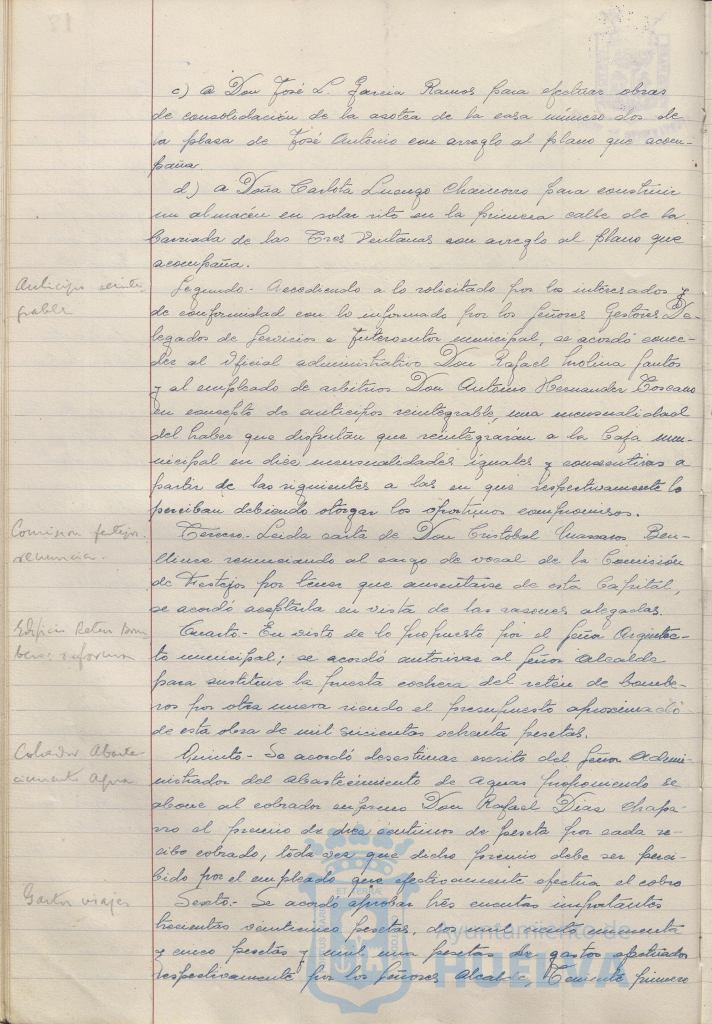 c) a Don José L. García Ramos para efectuar obras
de consolidación de la asotea de la casa número dos de
la plasa de José Antonio con arreglo al plano que acom-
paña.
d) a Doña Carlota Luengo Chamorro para construir
un almacén en solar sito en la primera calle de la
Barriada de las Tres Ventanas con arreglo al plano que
acompaña.
Anticipo reinte-
grable
Segundo.- Accediendo a lo solicitado por los interesados y
de conformidad con lo informado por los Señores Gestores De-
legados de Servicios e Interventor municipal, se acordó conce-
der al Oficial administrativo Don Rafael Molina Santos
y al empleado de arbitrios Don Antonio Hernandez Toscano
en concepto de anticipos reintegrable, una mensualidad
del haber que disfrutan que reintegrarán a la Caja mu-
nicipal en diez mensualidades iguales y consecutivas a
partir de las siguientes a las en que respectivamente lo
perciban debiendo otorgar los oportunos compromisos.
Comision festejos.
renuncia.
Tercero.- Leida carta de Don Cristobal Ben-
lliure renunciando al cargo de vocal de la Comisión
de Festejos por tener que ausentarse de esta Capital,
se acordó aceptarla en vista de las rasones alegadas.
Edificio Reten Bom
beros reforma
Cuarto.- En vista de lo propuesto por el Señor Arquitec-
to municipal; se acordó autorizar al Señor Alcalde
para sustituir la puesta cochera del retén de Bombe-
ros por otra nueva siendo el presupuesto aproximado
de esta obra de mil pesetas.
Cobrador Abaste-
cimiento Agua
Quinto.- Se acordó desestimar escrito del Señor Admi-
nistrador del abastecimiento de aguas proponiendo se
abone al cobrador enfermo Don Rafael Dias Chapa-
rro el premio de diez centimos de peseta por cada re-
cibo cobrado, toda ves que dicho premio debe ser perci-
bido por el empleado que efectivamente efectua el cobro
Gastos viajes
Sexto.- Se acordó aprobar tres cuentas importantes
trescientas veinticinco pesetas, dos mil ciento
y cinco pesetas y mil una pesetas de gastos efectuados
respectivamente por los Señores Alcalde, Teniente primero
Ayuntamiento de
HUELVA